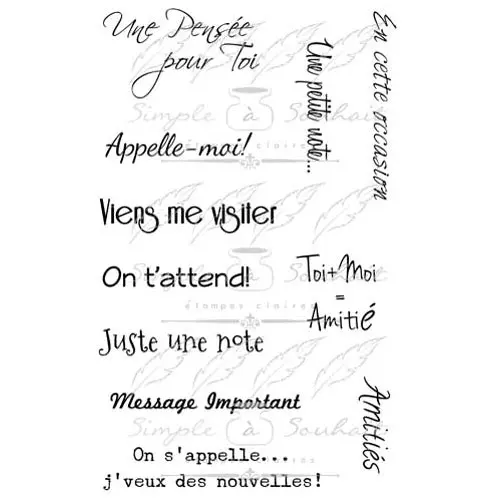 Une Pensée
pour Toi
Une petite note...
En cette occasion
Simple à Souhait
étampes claires
Appelle-moi!
Viens me visiter
On t'attend!
Toi+Moi
=
Amitié
étampes claires
Juste une note
Amitiés
Message Important
Simple à Souhait
On s'appelle...
j'veux des nouvelles!